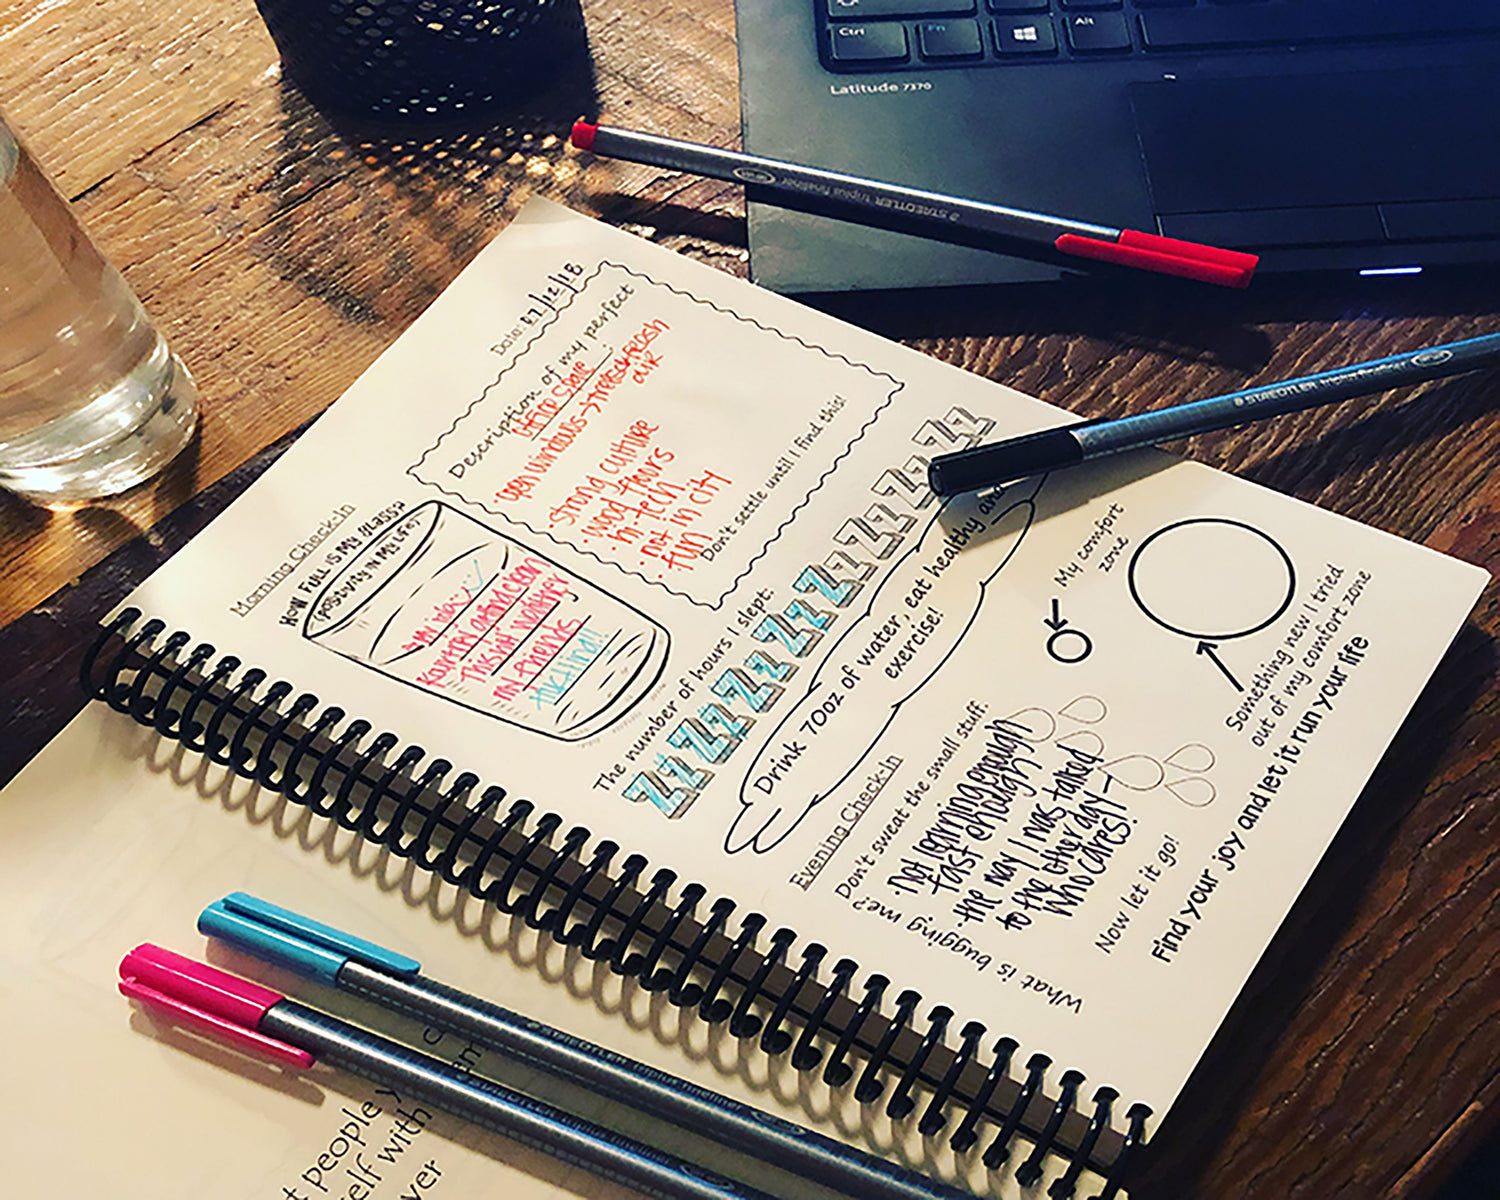 Ctrl
Fn
Alt
Latitude 7370
STAEDTLER triplus fineliner
STAEDTLER triplus fineliner
Date: 07/12/18
Morning Check-In
HOW FULL IS MY GLASS?
(positivity in my life)
Description of my perfect
office space:
open windows → fresh
air
strong culture
• wood floors
• hi-tech
• not in city
• fun
Don't settle until I find this!
The number of hours I slept:
ZZ ZZ ZZ ZZ ZZ ZZ ZZ ZZ ZZ ZZ
Drink 70oz of water, eat healthy and
exercise!
My comfort
zone
Something new I tried
out of my comfort zone
Evening Check-In
Don't sweat the small stuff.
What is bugging me?
• Not learning enough
fast enough
the way I was talked
to the other day –
Who cares!?
Now let it go!
Find your joy and let it run your life
STAEDTLER triplus fineliner
STAEDTLER triplus fineliner
people
self with